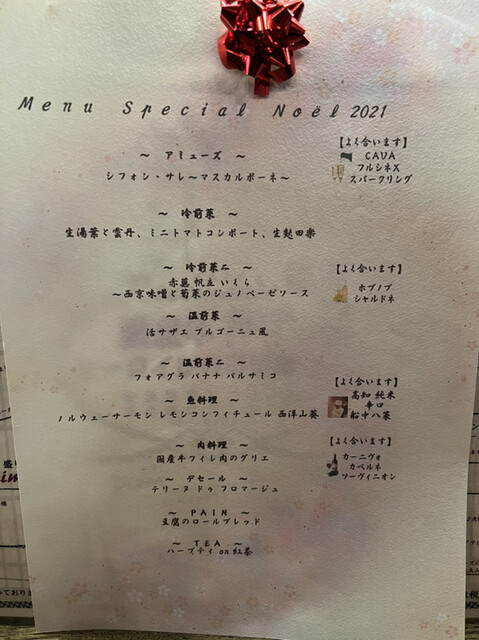 Menu Special Noël 2021
～ アミューズ ～
シフォン・サレ～マスカルポーネ～
【よく合います】
CAVA
フルシネX
スパークリング
～ 冷前菜 ～
生湯葉と雲丹、ミニトマトコンポート、生麩田楽
～ 冷前菜二 ～
赤蕪 帆立 いくら
～西京味噌と菊菜のジェノベーゼソース
【よく合います】
ホブノブ
シャルドネ
～ 温前菜 ～
活サザエ ブルゴーニュ風
～ 温前菜二 ～
フォアグラ バナナ バルサミコ
～ 魚料理 ～
ノルウェーサーモン レモンコンフィチュール 西洋山葵
【よく合います】
高知 純米
辛口
船中八菜
～ 肉料理 ～
国産牛フィレ肉のグリエ
【よく合います】
カーニヴォ
カベルネ
ソーヴィニオン
～ デセール ～
テリーヌ ドゥ フロマージュ
～ PAIN ～
豆腐のロールブレッド
～ TEA ～
ハーブティ on 紅茶